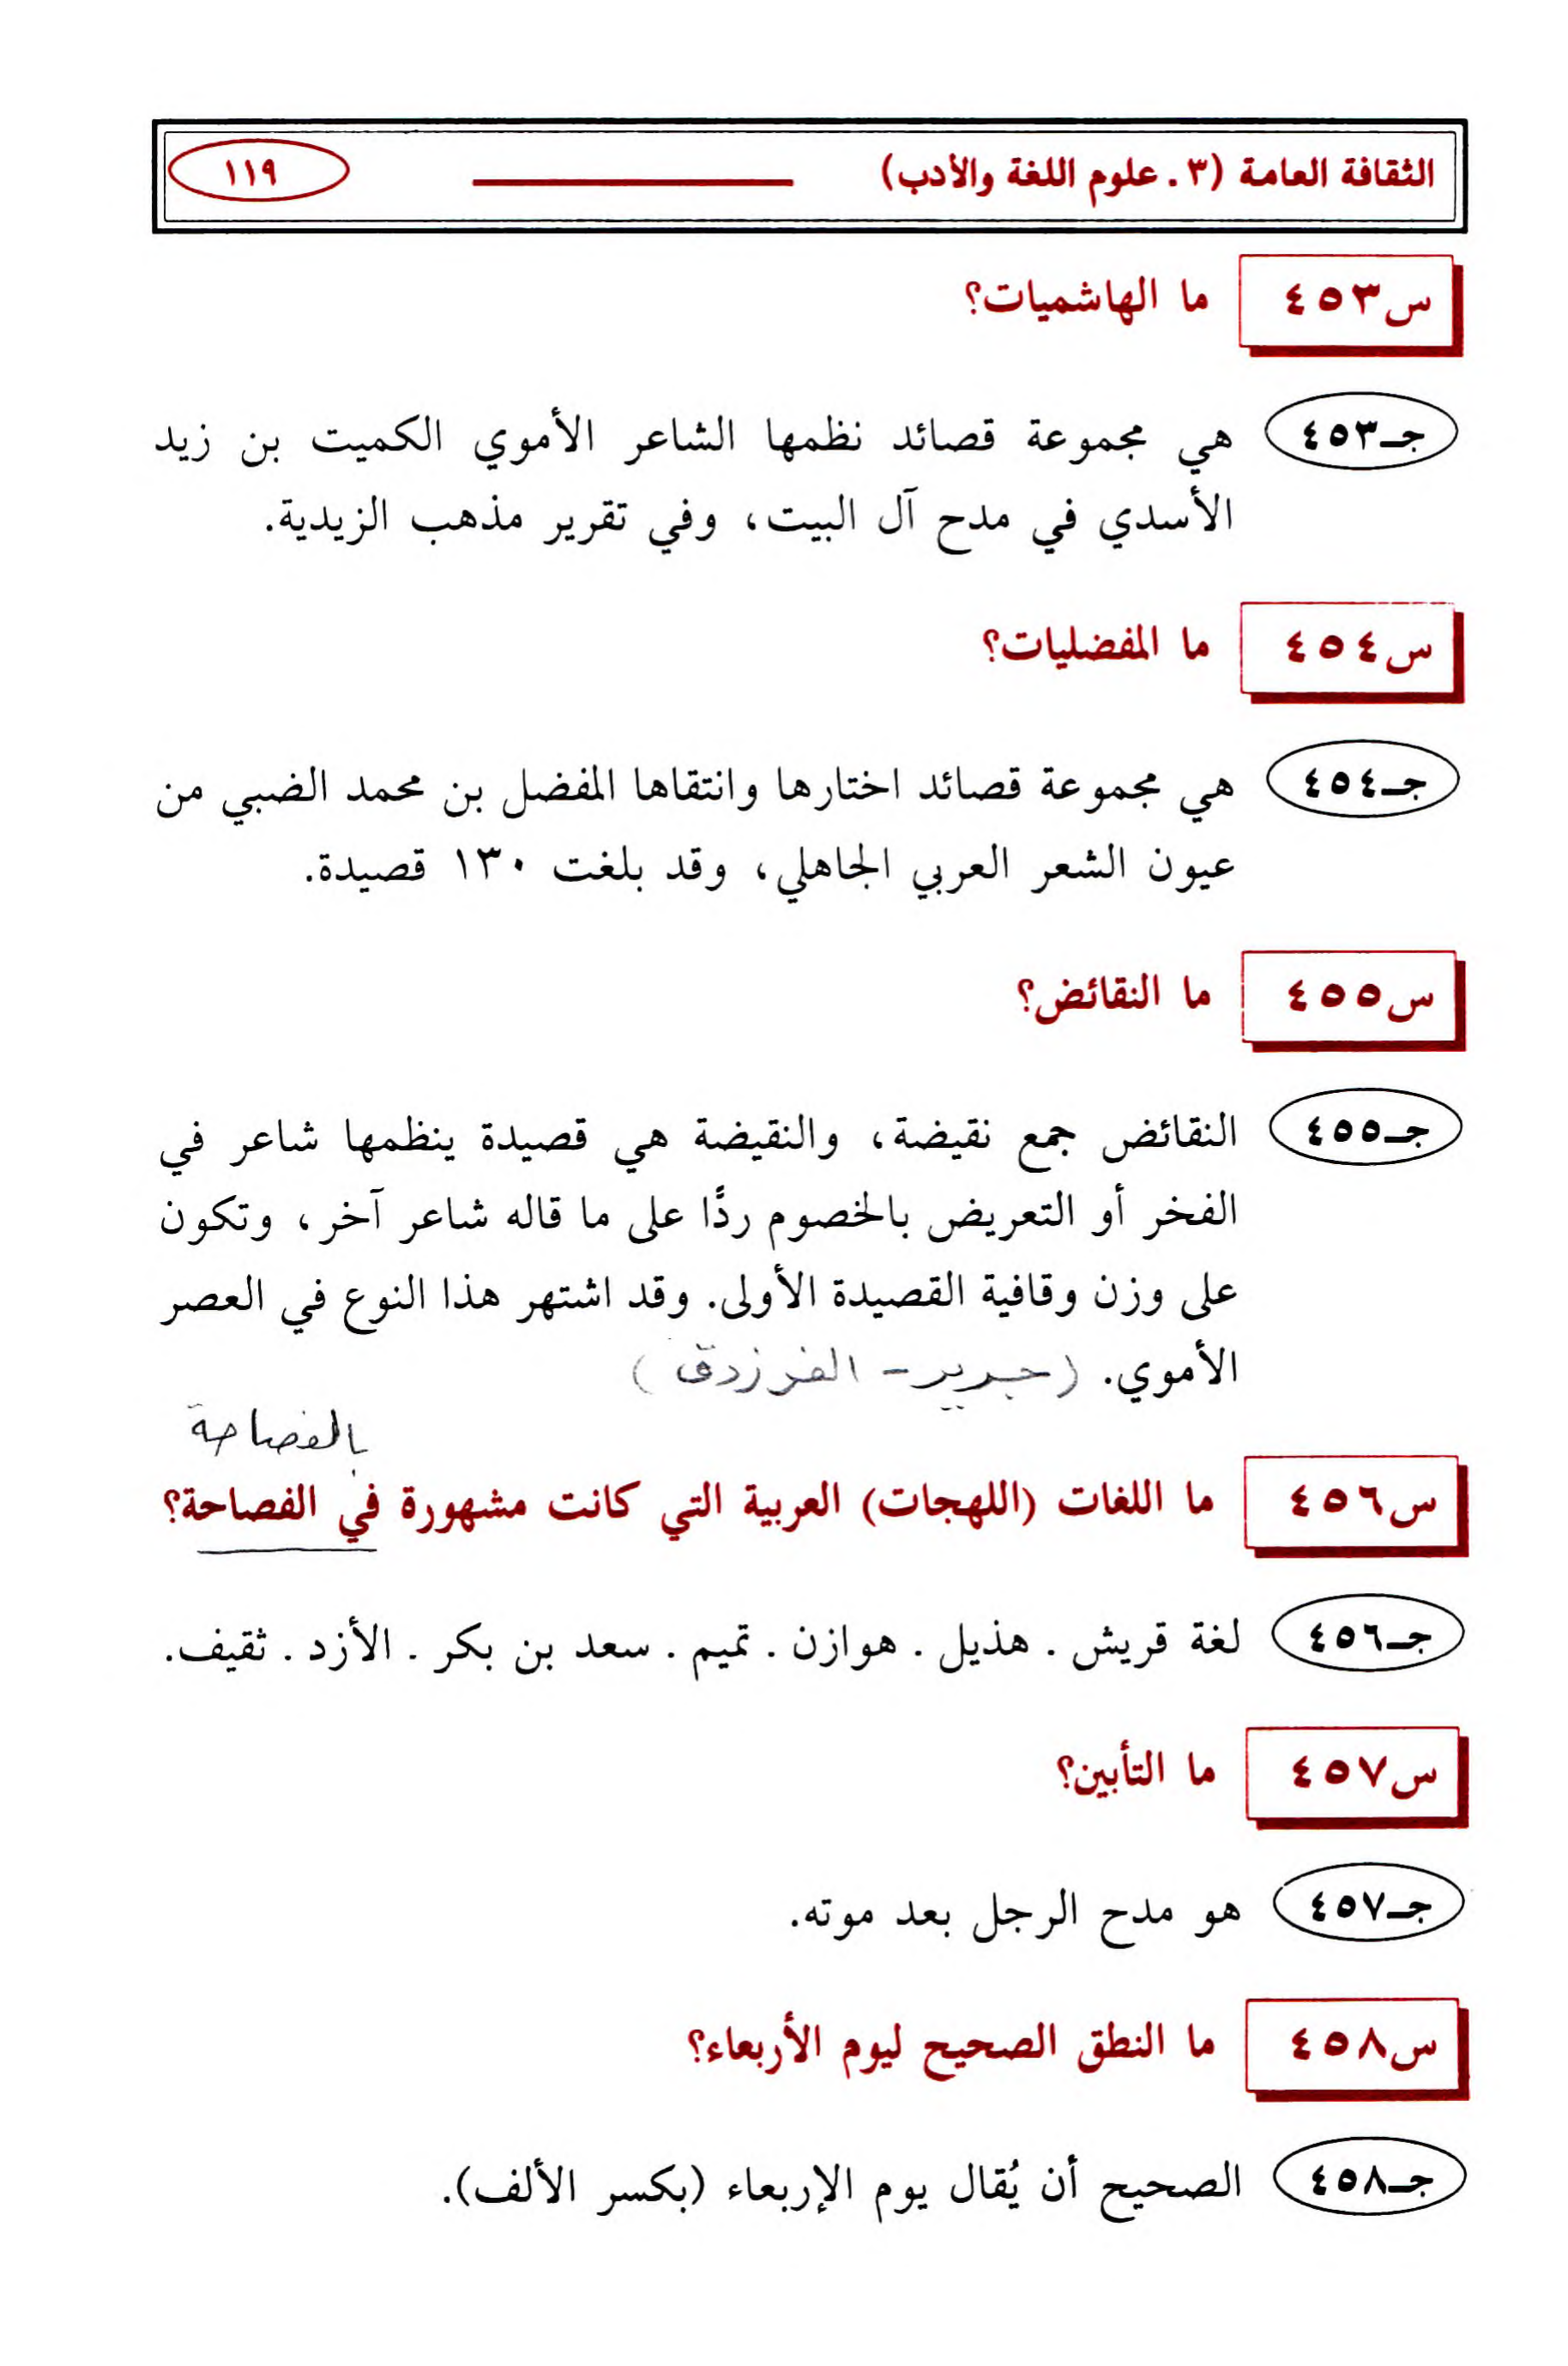 الثقافة العامة (٣ . علوم اللغة والأدب) ١١٩
س٤٥٣ ما الهاشميات؟
جـ٤٥٣ هي مجموعة قصائد نظمها الشاعر الأموي الكميت بن زيد
الأسدي في مدح آل البيت، وفي تقرير مذهب الزيدية.
س٤٥٤ ما المفضليات؟
جـ٤٥٤ هي مجموعة قصائد اختارها وانتقاها المفضل بن محمد الضبي من
عيون الشعر العربي الجاهلي، وقد بلغت ١٣٠ قصيدة.
س٤٥٥ ما النقائض؟
جـ٤٥٥ النقائض جمع نقيضة، والنقيضة هي قصيدة ينظمها شاعر في
الفخر أو التعريض بالخصوم ردًّا على ما قاله شاعر آخر، وتكون
على وزن وقافية القصيدة الأولى. وقد اشتهر هذا النوع في العصر
الأموي. (جرير - الفرزدق)
بالفصاحة
س٤٥٦ ما اللغات (اللهجات) العربية التي كانت مشهورة في الفصاحة؟
جـ٤٥٦ لغة قريش . هذيل . هوازن . تميم . سعد بن بكر . الأزد . ثقيف.
س٤٥٧ ما التأبين؟
جـ٤٥٧ هو مدح الرجل بعد موته.
س٤٥٨ ما النطق الصحيح ليوم الأربعاء؟
جـ٤٥٨ الصحيح أن يُقال يوم الإربعاء (بكسر الألف).